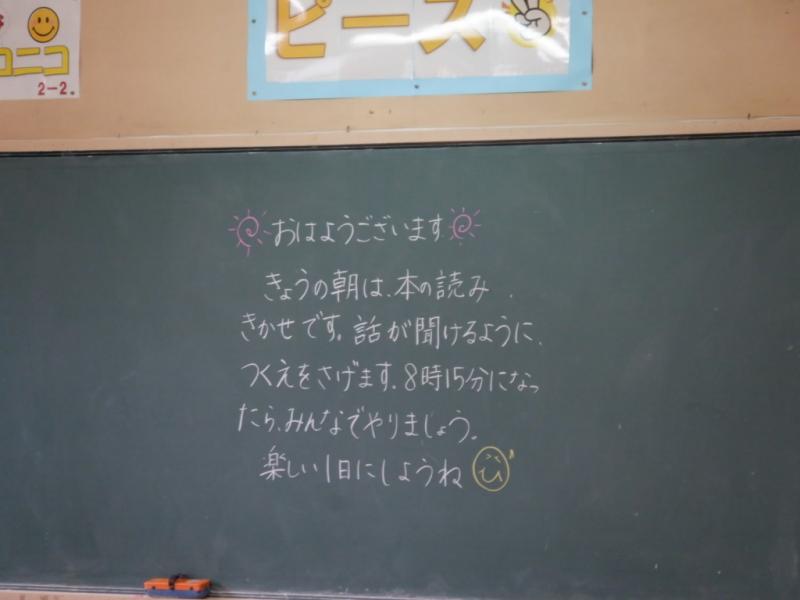 コニコ
2-2。
ピース
おはようございます
きょうの朝は、本の読み
きかせです。話が聞けるように、
つくえをさげます。8時15分になっ
たら、みんなでやりましょう。
楽しい1日にしようね